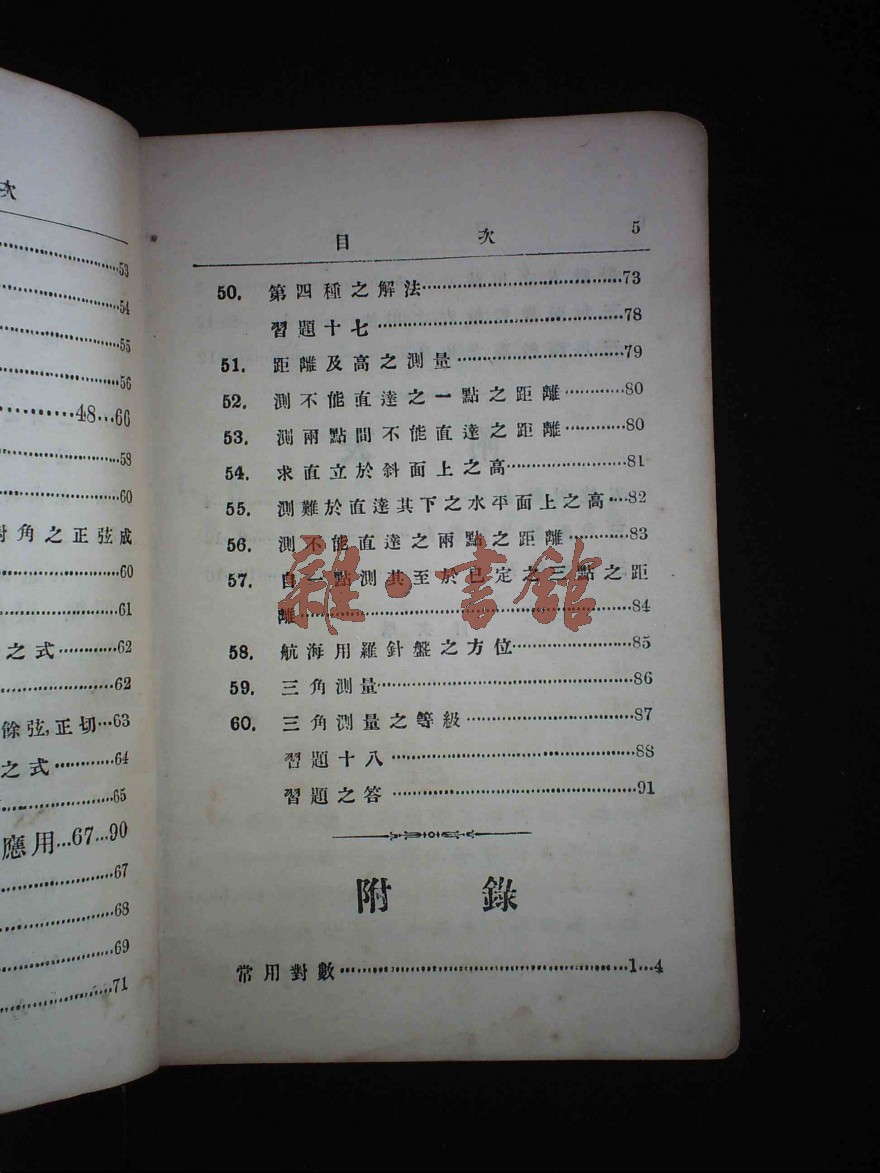 次
53
54
55
56
48…66
58
60
角之正弦成
60
61
之式…………62
62
餘弦,正切…63
之式…………64
65
應用…67…90
67
68
69
71
目 次 5
50. 第四種之解法…………73
習題十七…………78
51. 距離及高之測量…………79
52. 測不能直達之一點之距離…………80
53. 測兩點間不能直達之距離…………80
54. 求直立於斜面上之高…………81
55. 測難於直達其下之水平面上之高…82
56. 測不能直達之兩點之距離…………83
57. 自一點測其至於已定之三點之距
離…………84
58. 航海用羅針盤之方位…………85
59. 三角測量…………86
60. 三角測量之等級…………87
習題十八…………88
習題之答…………91
附 錄
常用對數…………1…4
雜·書館